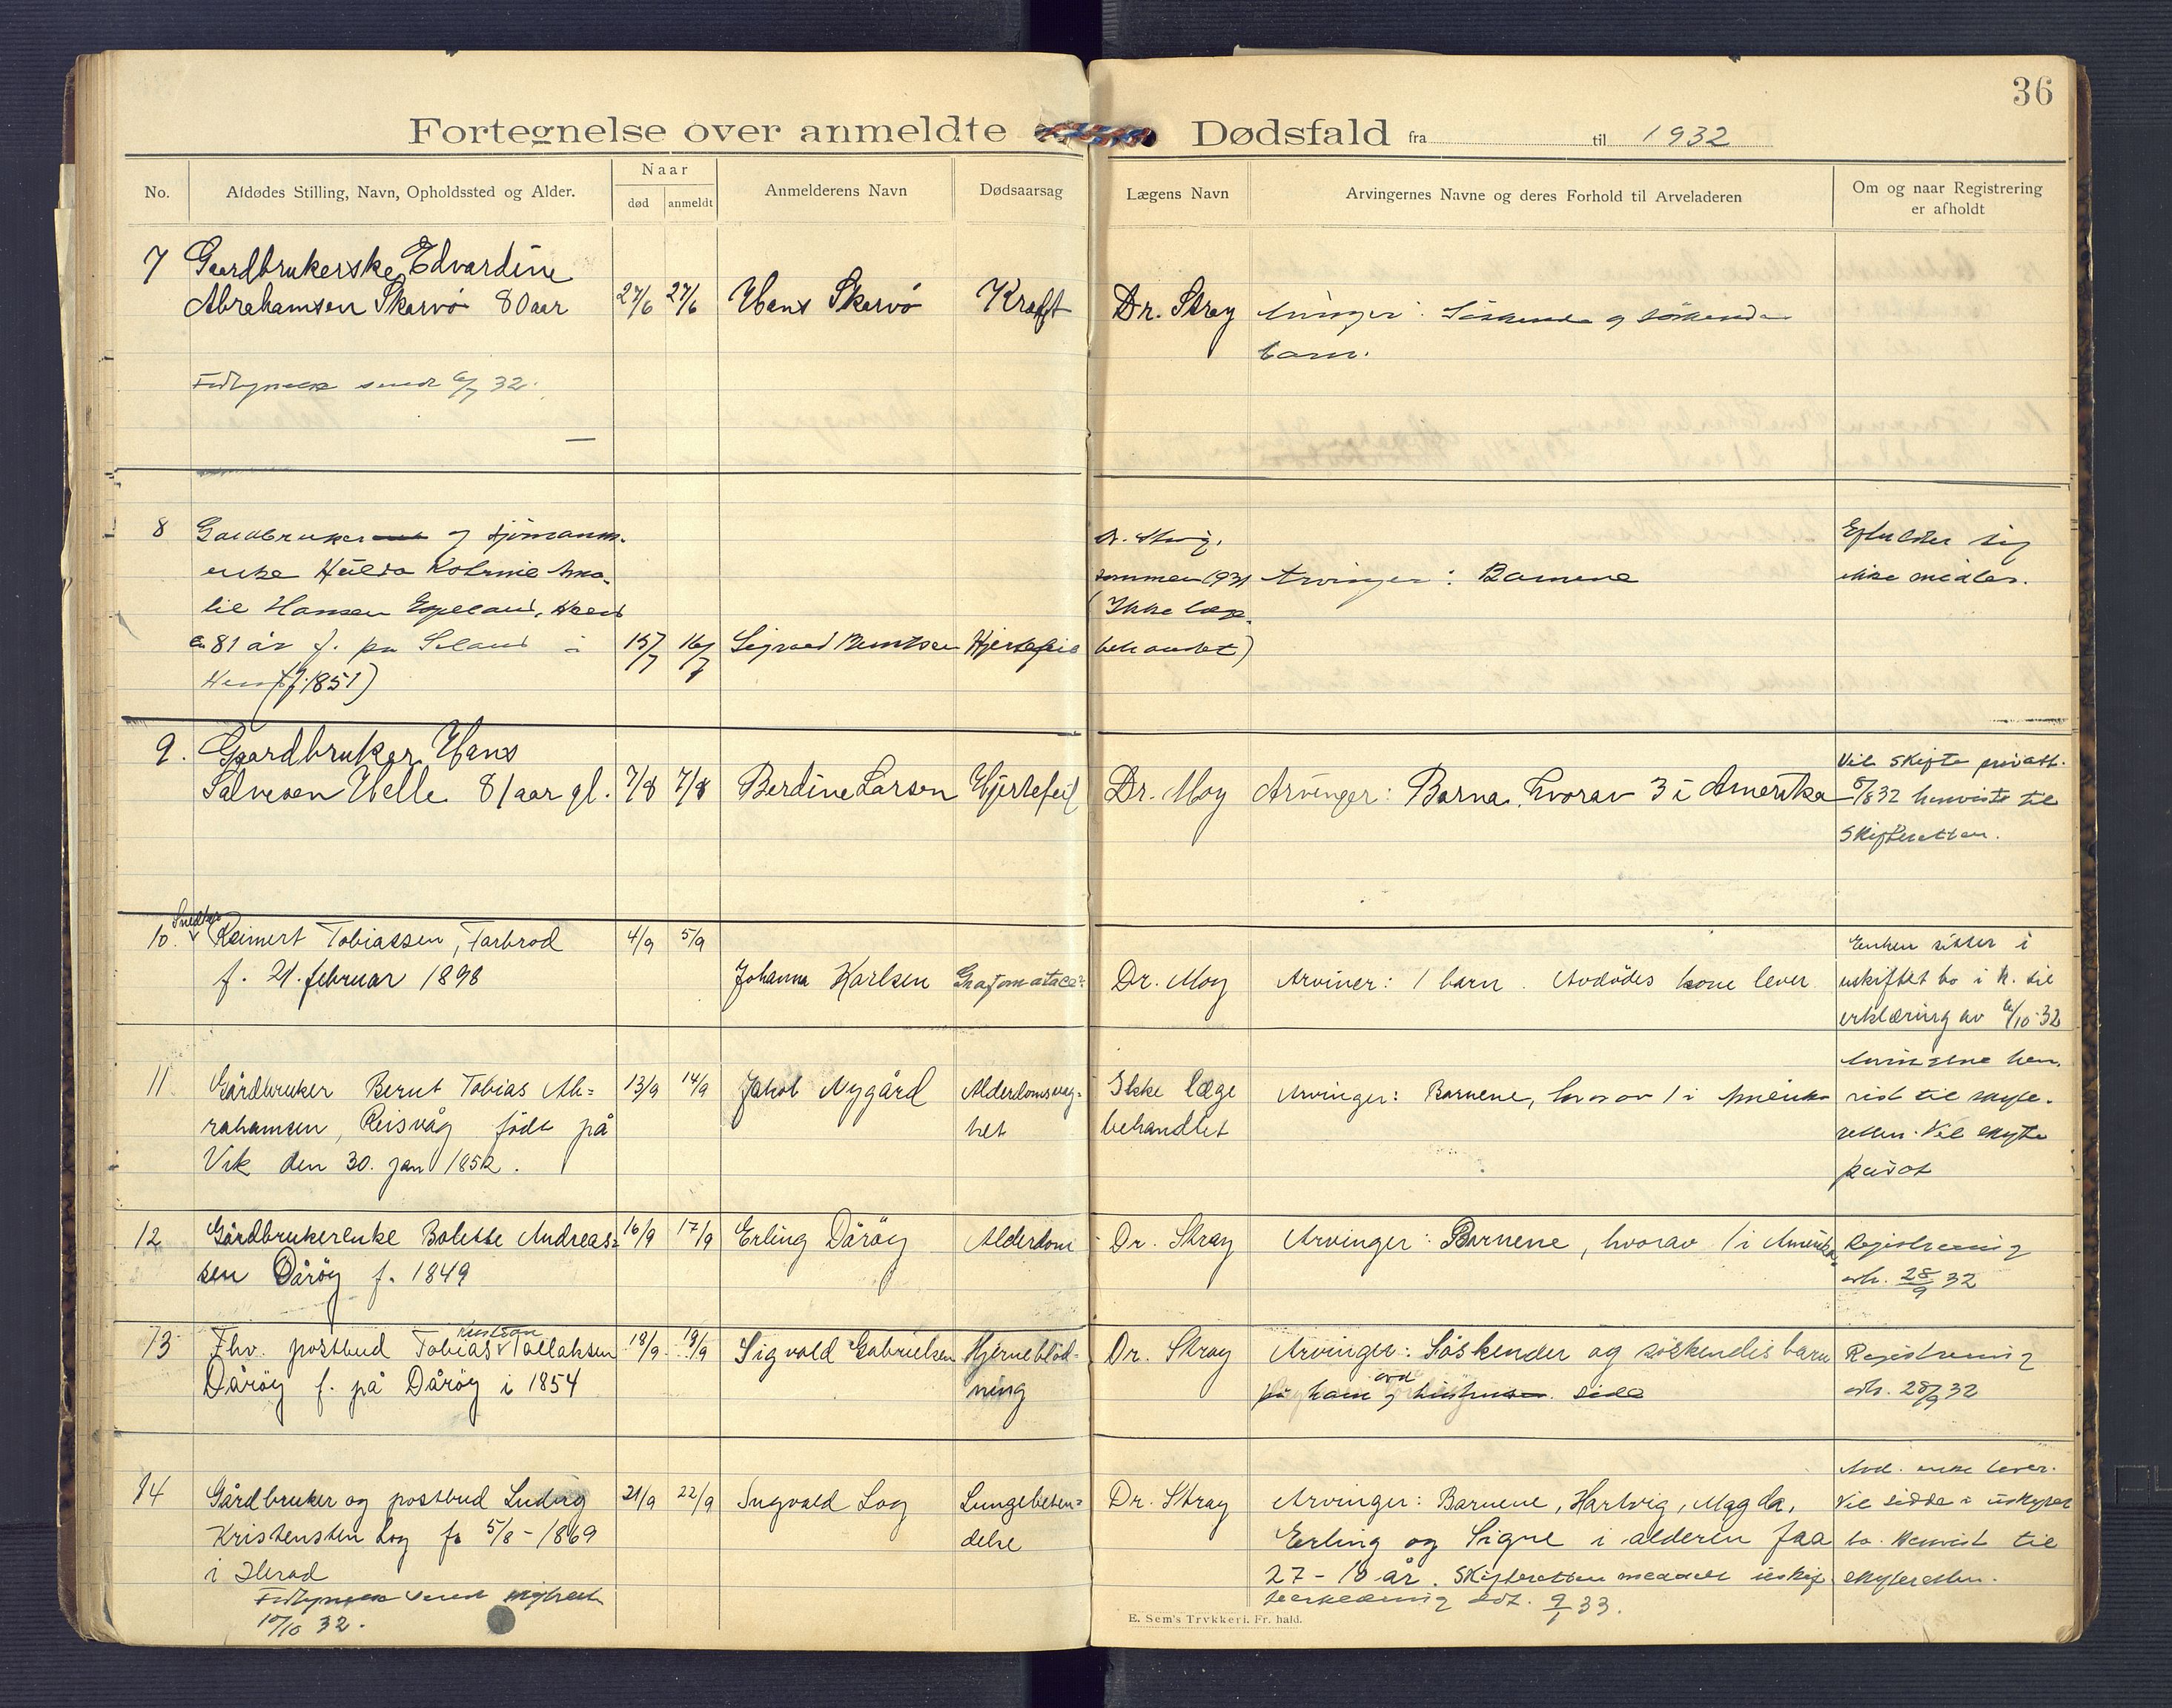 36
Fortegnelse over anmeldte Dødsfald fra til 1932
No. Afdødes Stilling, Navn, Opholdssted og Alder. Naar død anmeldt Anmelderens Navn Dødsaarsag Lægens Navn Arvingernes Navne og deres Forhold til Arveladeren Om og naar Registrering er afholdt
7 Gaardbrukerske Edvardine
Abrahamsen Skarvö 80 aar 27/6 27/6 Hans Skarvö Kræft Dr. Stray Arvinger: Söskende og söskende
barn.
sendt 6/7 32.
8 Gardbruker og sjömanns-
enke Hulda Ama-
lie Hansen Egeland,
81 år f. på i 15/7 16/7 Sigvald Berntsen Hjertefeil
(f. 1851)
sommer 1931
(Ikke læge-
behandlet)
Arvinger: Barnene
sig
ikke midler.
9. Gaardbruker Hans
Salvesen Helle 81 aar gl. 7/8 7/8 Berdine Larsen Hjertefeil Dr. Moy Arvinger: Barna hvorav 3 i Amerika
Vil skifte privat.
8/8 32 henvist til
Skifteretten.
10. Snedker Reimert Tobiassen, Tarbrod 4/9 5/9
f. 21. februar 1898 Johanna Karlsen Dr. Moy Arviner: 1 barn. Avdödes kone lever
Enken sitter i
uskiftet bo i h. til
erklæring av 6/10-32
11 Gårdbruker Bernt Tobias Ab= 13/9 14/9 Jakob Nygård Alderdomsvag- Ikke læge Arvinger: Barnene, hvorav 1 i Amerika
rahamsen, Reisvåg född på het behandlet
Vik den 30. jan 1852.
Arvingene hen-
vist til skifte-
retten. Vil skifte
privat
12 Gårdbrukerenke Bolette Andreas= 16/9 17/9 Erling Dåröy Alderdom Dr. Stray Arvinger: Barnene, hvorav 1 i Amerika
sen Dåröy f. 1849
Registrering
avh. 28/9 32
13 Fhv. postbud Tobias Tallaksen 18/9 19/9 Sigvald Gabrielsen Hjerneblöd- Dr. Stray Arvinger: Söskender og söskendis barn
Dåröy f. på Dåröy i 1854 ning på ham og side
Registrering
avh. 28/9 32
14 Gårdbruker og postbud Ludvig 21/9 22/9 Ingvald Log Lungebeten= Dr. Stray Arvinger: Barnene, Hartvig, Magda,
Kristensten Log f. 5/8-1869 delse Erling og Signe i alderen fra
i Herad 27-10 år. Skifteretten meddelt uskif
dat. 9/1 33.
sendt
17/10 32.
Avd. enke lever.
Vil sidde i uskiftet
bo. Henvist til
skifteretten.
E. Sem's Trykkeri. Fr. hald.